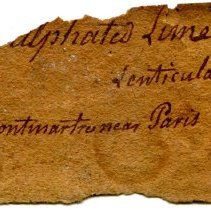 ulphated Lime
Lenticula
ontmartre near Paris